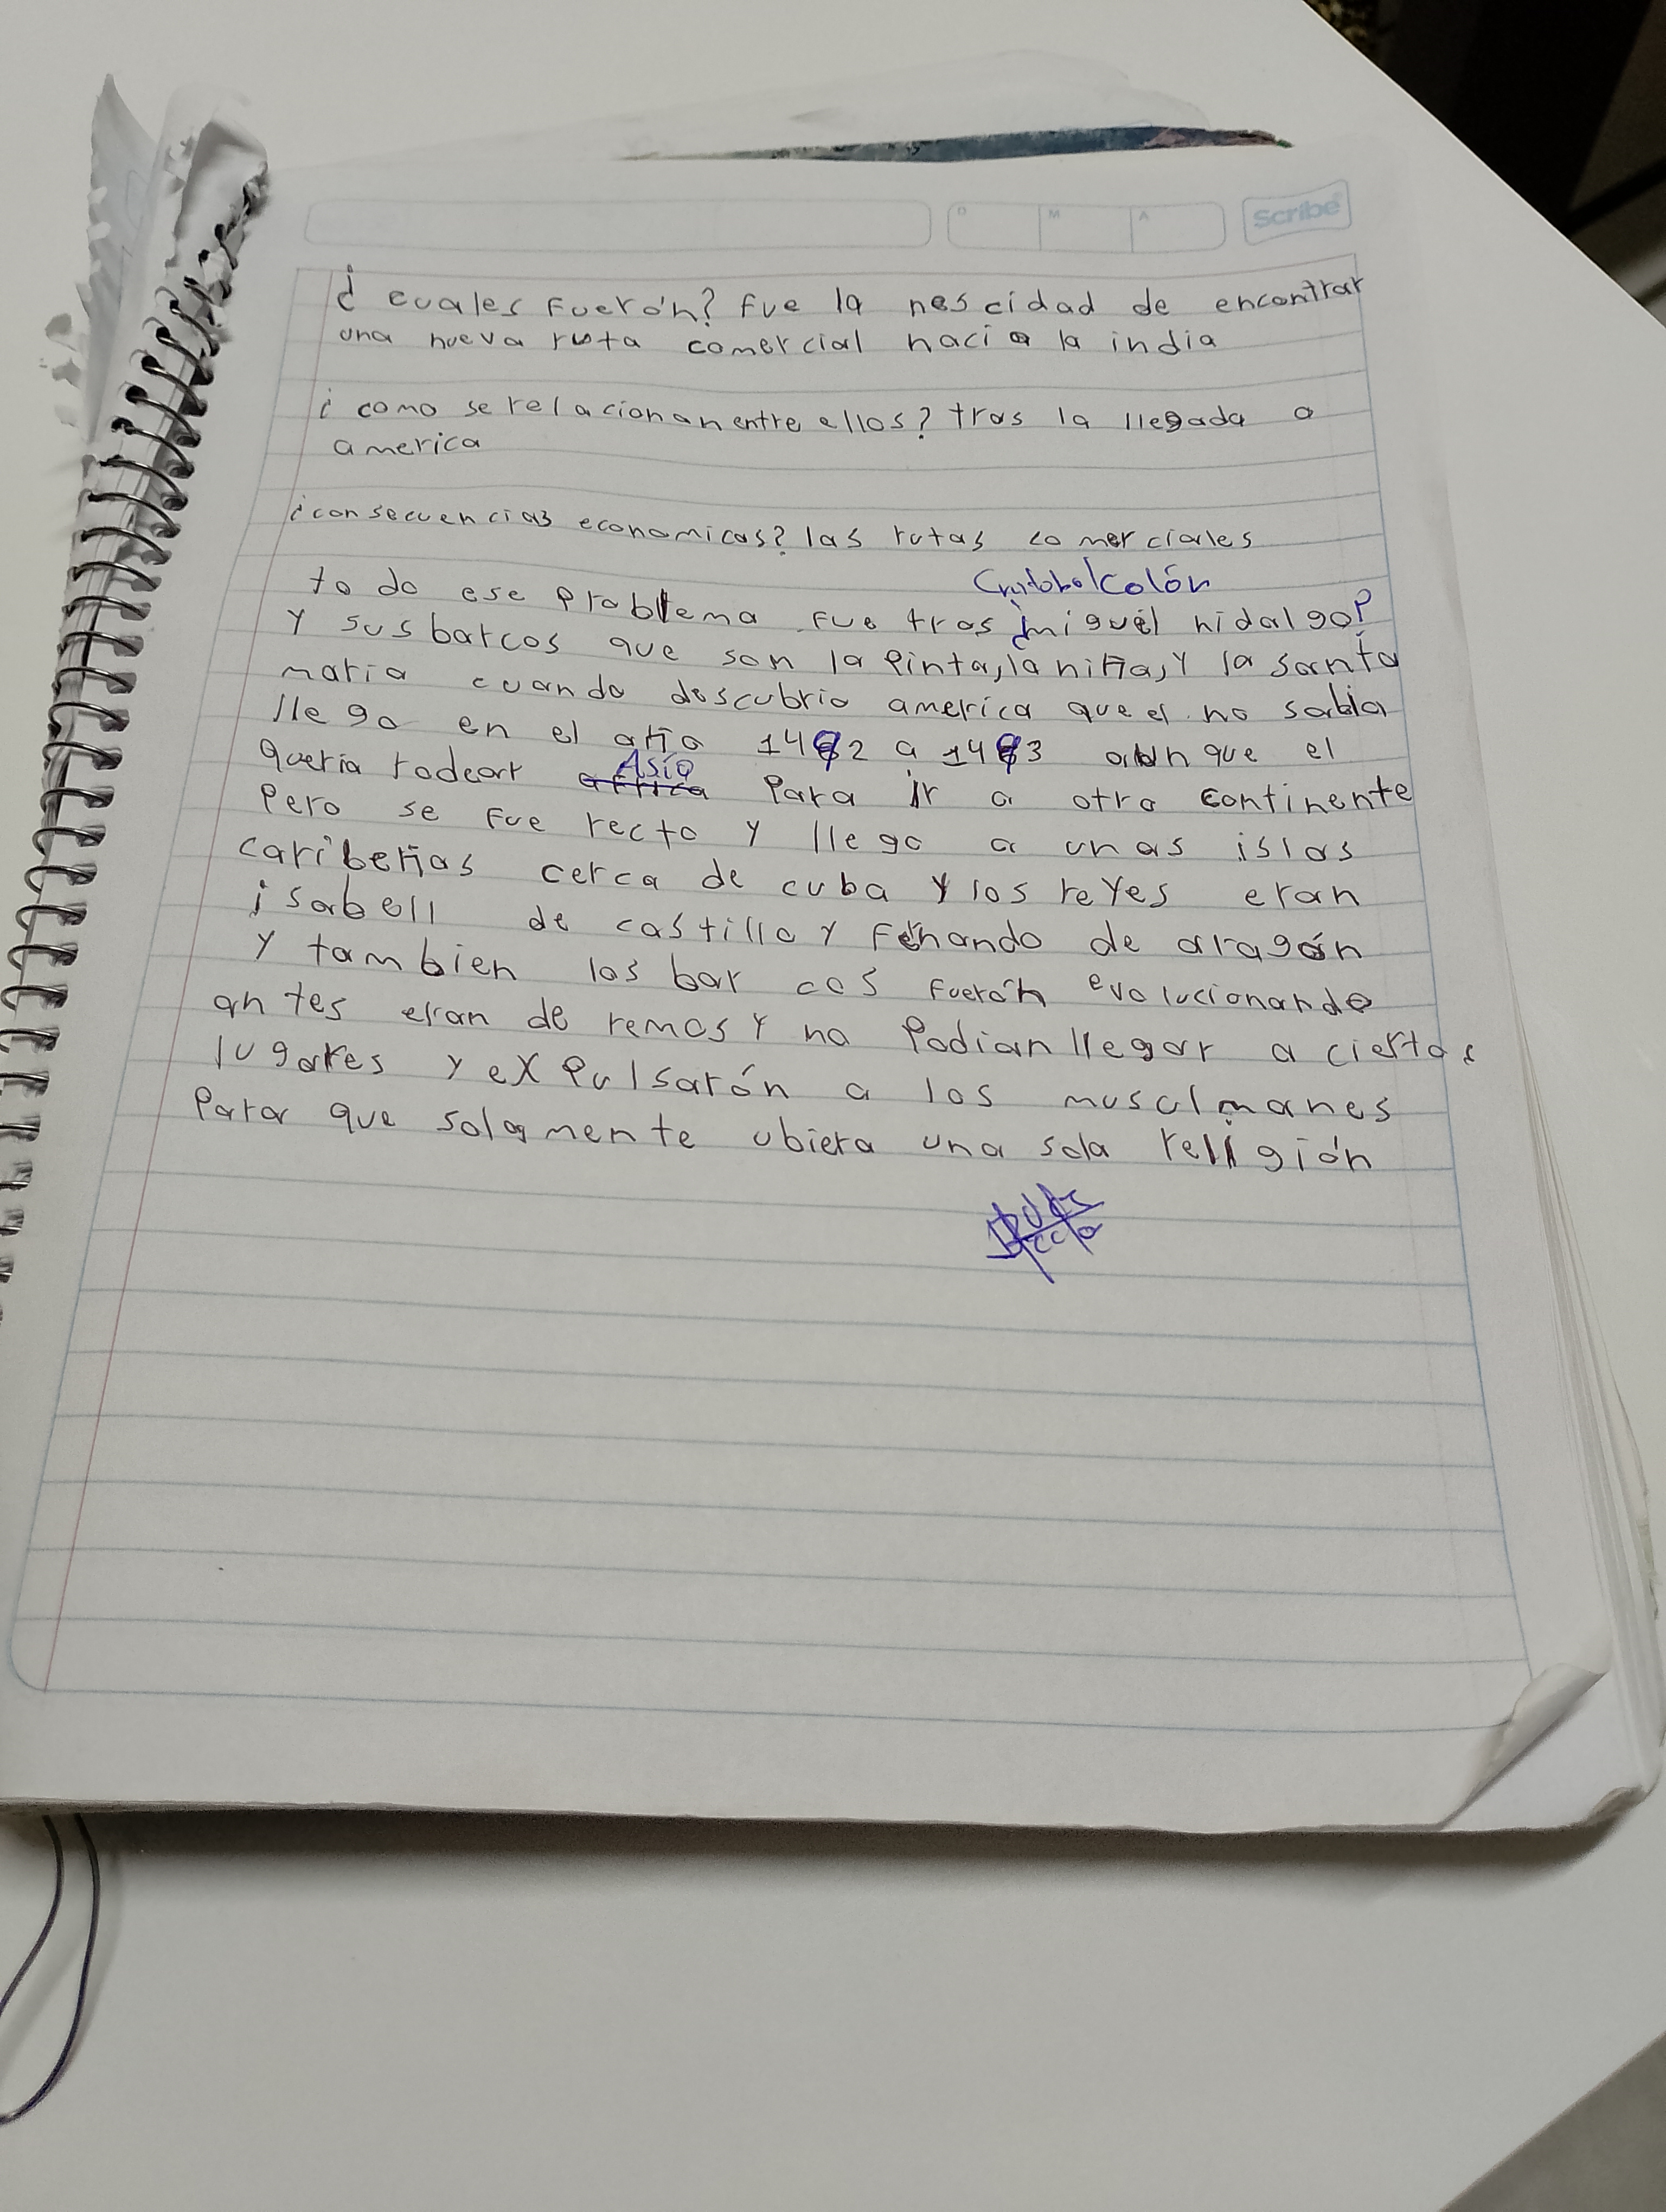 D M A Scribe
¿cuales fuerón? fue la nescidad de encontrar
una nueva ruta comercial hacia la india
¿como se relacionan entre ellos? tras la llegada a
america
¿consecuencias economicas? las rutas comerciales
Cristobal Colón
todo ese problema fue tras ¿miguel hidalgo?
y sus barcos que son la pinta, la niña, y la santa
maria cuando descubrio america que el no sabia
llego en el año 1492 a 1493 aunque el
Asia
queria rodear africa para ir a otro continente
pero se fue recto y llego a unas islas
caribeñas cerca de cuba y los reyes eran
isabell de castilla y Fernando de aragón
y tambien los barcos fuerón evolucionando
antes eran de remos y no podian llegar a ciertos
lugares y expulsarón a los musulmanes
para que solamente ubiera una sola religión